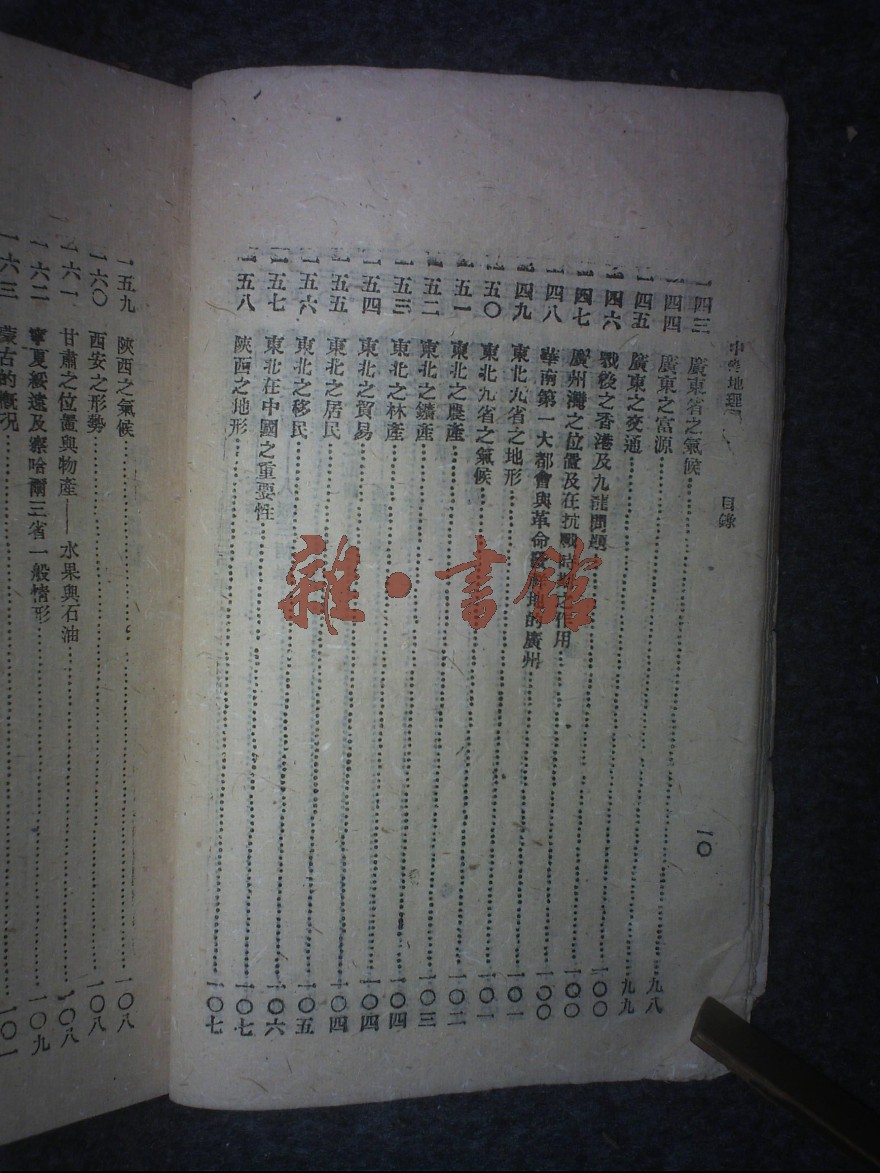 中學地理 目錄 一〇
一四三 廣東省之氣候 九八
一四四 廣東之富源 九九
一四五 廣東之交通 一〇〇
一四六 戰後之香港及九龍問題 一〇〇
一四七 廣州灣之位置及在抗戰時期之作用 一〇〇
一四八 華南第一大都會與革命發祥地的廣州 一〇一
一四九 東北九省之地形 一〇一
一五〇 東北九省之氣候 一〇二
一五一 東北之農產 一〇三
一五二 東北之鑛產 一〇四
一五三 東北之林產 一〇四
一五四 東北之貿易 一〇四
一五五 東北之居民 一〇五
一五六 東北之移民 一〇六
一五七 東北在中國之重要性 一〇七
一五八 陝西之地形 一〇七
一五九 陝西之氣候 一〇八
一六〇 西安之形勢 一〇八
一六一 甘肅之位置與物產——水果與石油 一〇八
一六二 寧夏綏遠及察哈爾三省一般情形 一〇九
一六三 蒙古的概況
雜·書館